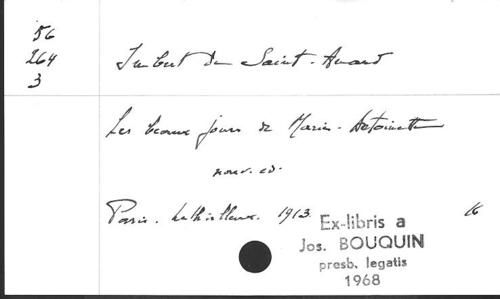 56
264
3
Imbert de Saint-Amand
Les beaux jours de Marie-Antoinette
nouv. éd.
Paris. Lethielleux. 1913. 16
Ex-libris a
Jos. BOUQUIN
presb. legatis
1968